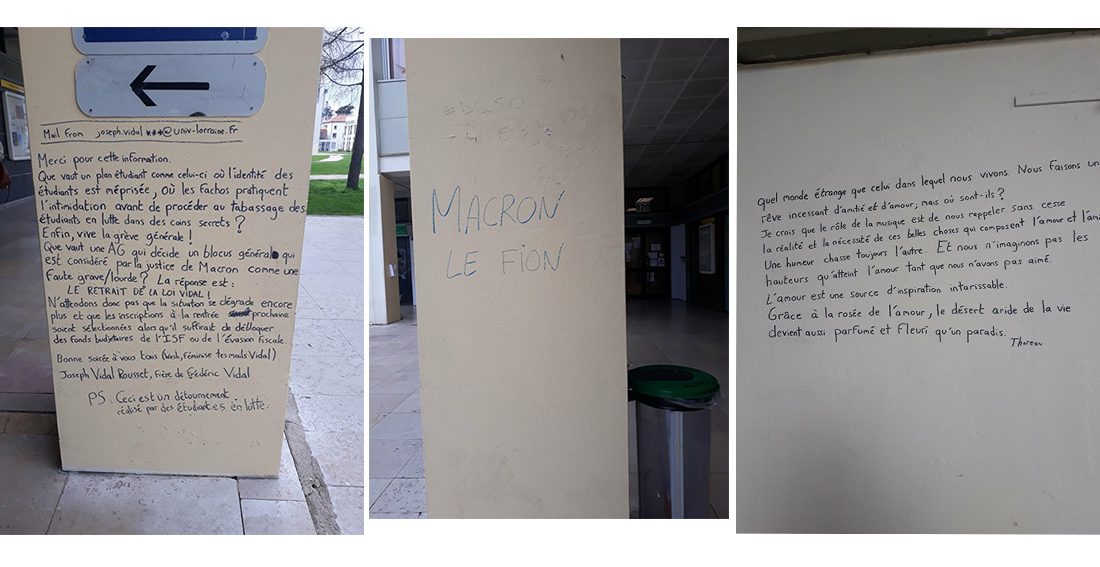 Mail From joseph.vidal ***@univ-lorraine.fr
Merci pour cette information.
Que vaut un plan étudiant comme celui-ci où l'identité des
étudiants est méprisée, où les fachos pratiquent
l'intimidation avant de procéder au tabassage des
étudiants en lutte dans des coins secrets ?
Enfin, vive la grève générale !
Que vaut une AG qui décide un blocus général qui
est considéré par la justice de Macron comme une
faute grave/lourde ? La réponse est :
LE RETRAIT DE LA LOI VIDAL !
N'attendons donc pas que la situation se dégrade encore
plus et que les inscriptions à la rentrée prochaine
soient sélectionnées alors qu'il suffirait de débloquer
des fonds budgétaires de l'ISF ou de l'évasion fiscale.
Bonne soirée à vous tous (Wesh, féminise tes mails Vidal)
Joseph Vidal Rousset, frère de Frédéric Vidal
PS : Ceci est un détournement
réalisé par des étudiant.e.s. en lutte.
MACRON
LE FION
quel monde étrange que celui dans lequel nous vivons. Nous faisons un
rêve incessant d'amitié et d'amour, mais où sont-ils ?
Je crois que le rôle de la musique est de nous rappeler sans cesse
la réalité et la nécessité de ces belles choses qui composent l'amour et
Une humeur chasse toujours l'autre. Et nous n'imaginons pas les
hauteurs qu'atteint l'amour tant que nous n'avons pas aimé.
L'amour est une source d'inspiration intarissable.
Grâce à la rosée de l'amour, le désert aride de la vie
devient aussi parfumé et fleuri qu'un paradis.
Thoreau